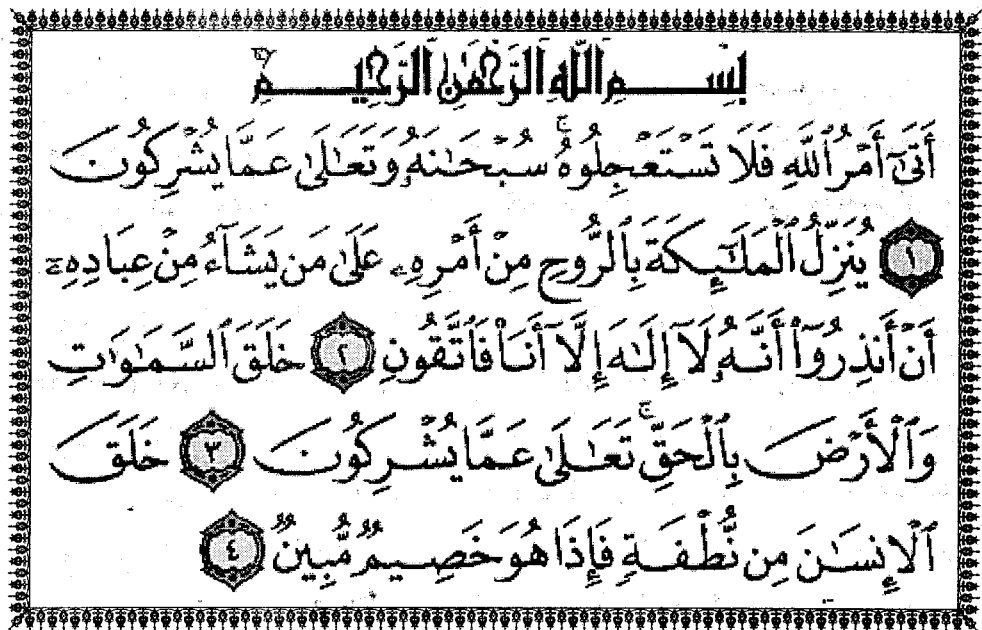 بِسْمِ ٱللَّهِ ٱلرَّحْمَٰنِ ٱلرَّحِيمِ
أَتَىٰٓ أَمْرُ ٱللَّهِ فَلَا تَسْتَعْجِلُوهُ ۚ سُبْحَٰنَهُۥ وَتَعَٰلَىٰ عَمَّا يُشْرِكُونَ
١ يُنَزِّلُ ٱلْمَلَٰٓئِكَةَ بِٱلرُّوحِ مِنْ أَمْرِهِۦ عَلَىٰ مَن يَشَآءُ مِنْ عِبَادِهِۦٓ
أَنْ أَنذِرُوٓا۟ أَنَّهُۥ لَآ إِلَٰهَ إِلَّآ أَنَا۠ فَٱتَّقُونِ ٢ خَلَقَ ٱلسَّمَٰوَٰتِ
وَٱلْأَرْضَ بِٱلْحَقِّ ۚ تَعَٰلَىٰ عَمَّا يُشْرِكُونَ ٣ خَلَقَ
ٱلْإِنسَٰنَ مِن نُّطْفَةٍ فَإِذَا هُوَ خَصِيمٌ مُّبِينٌ ٤